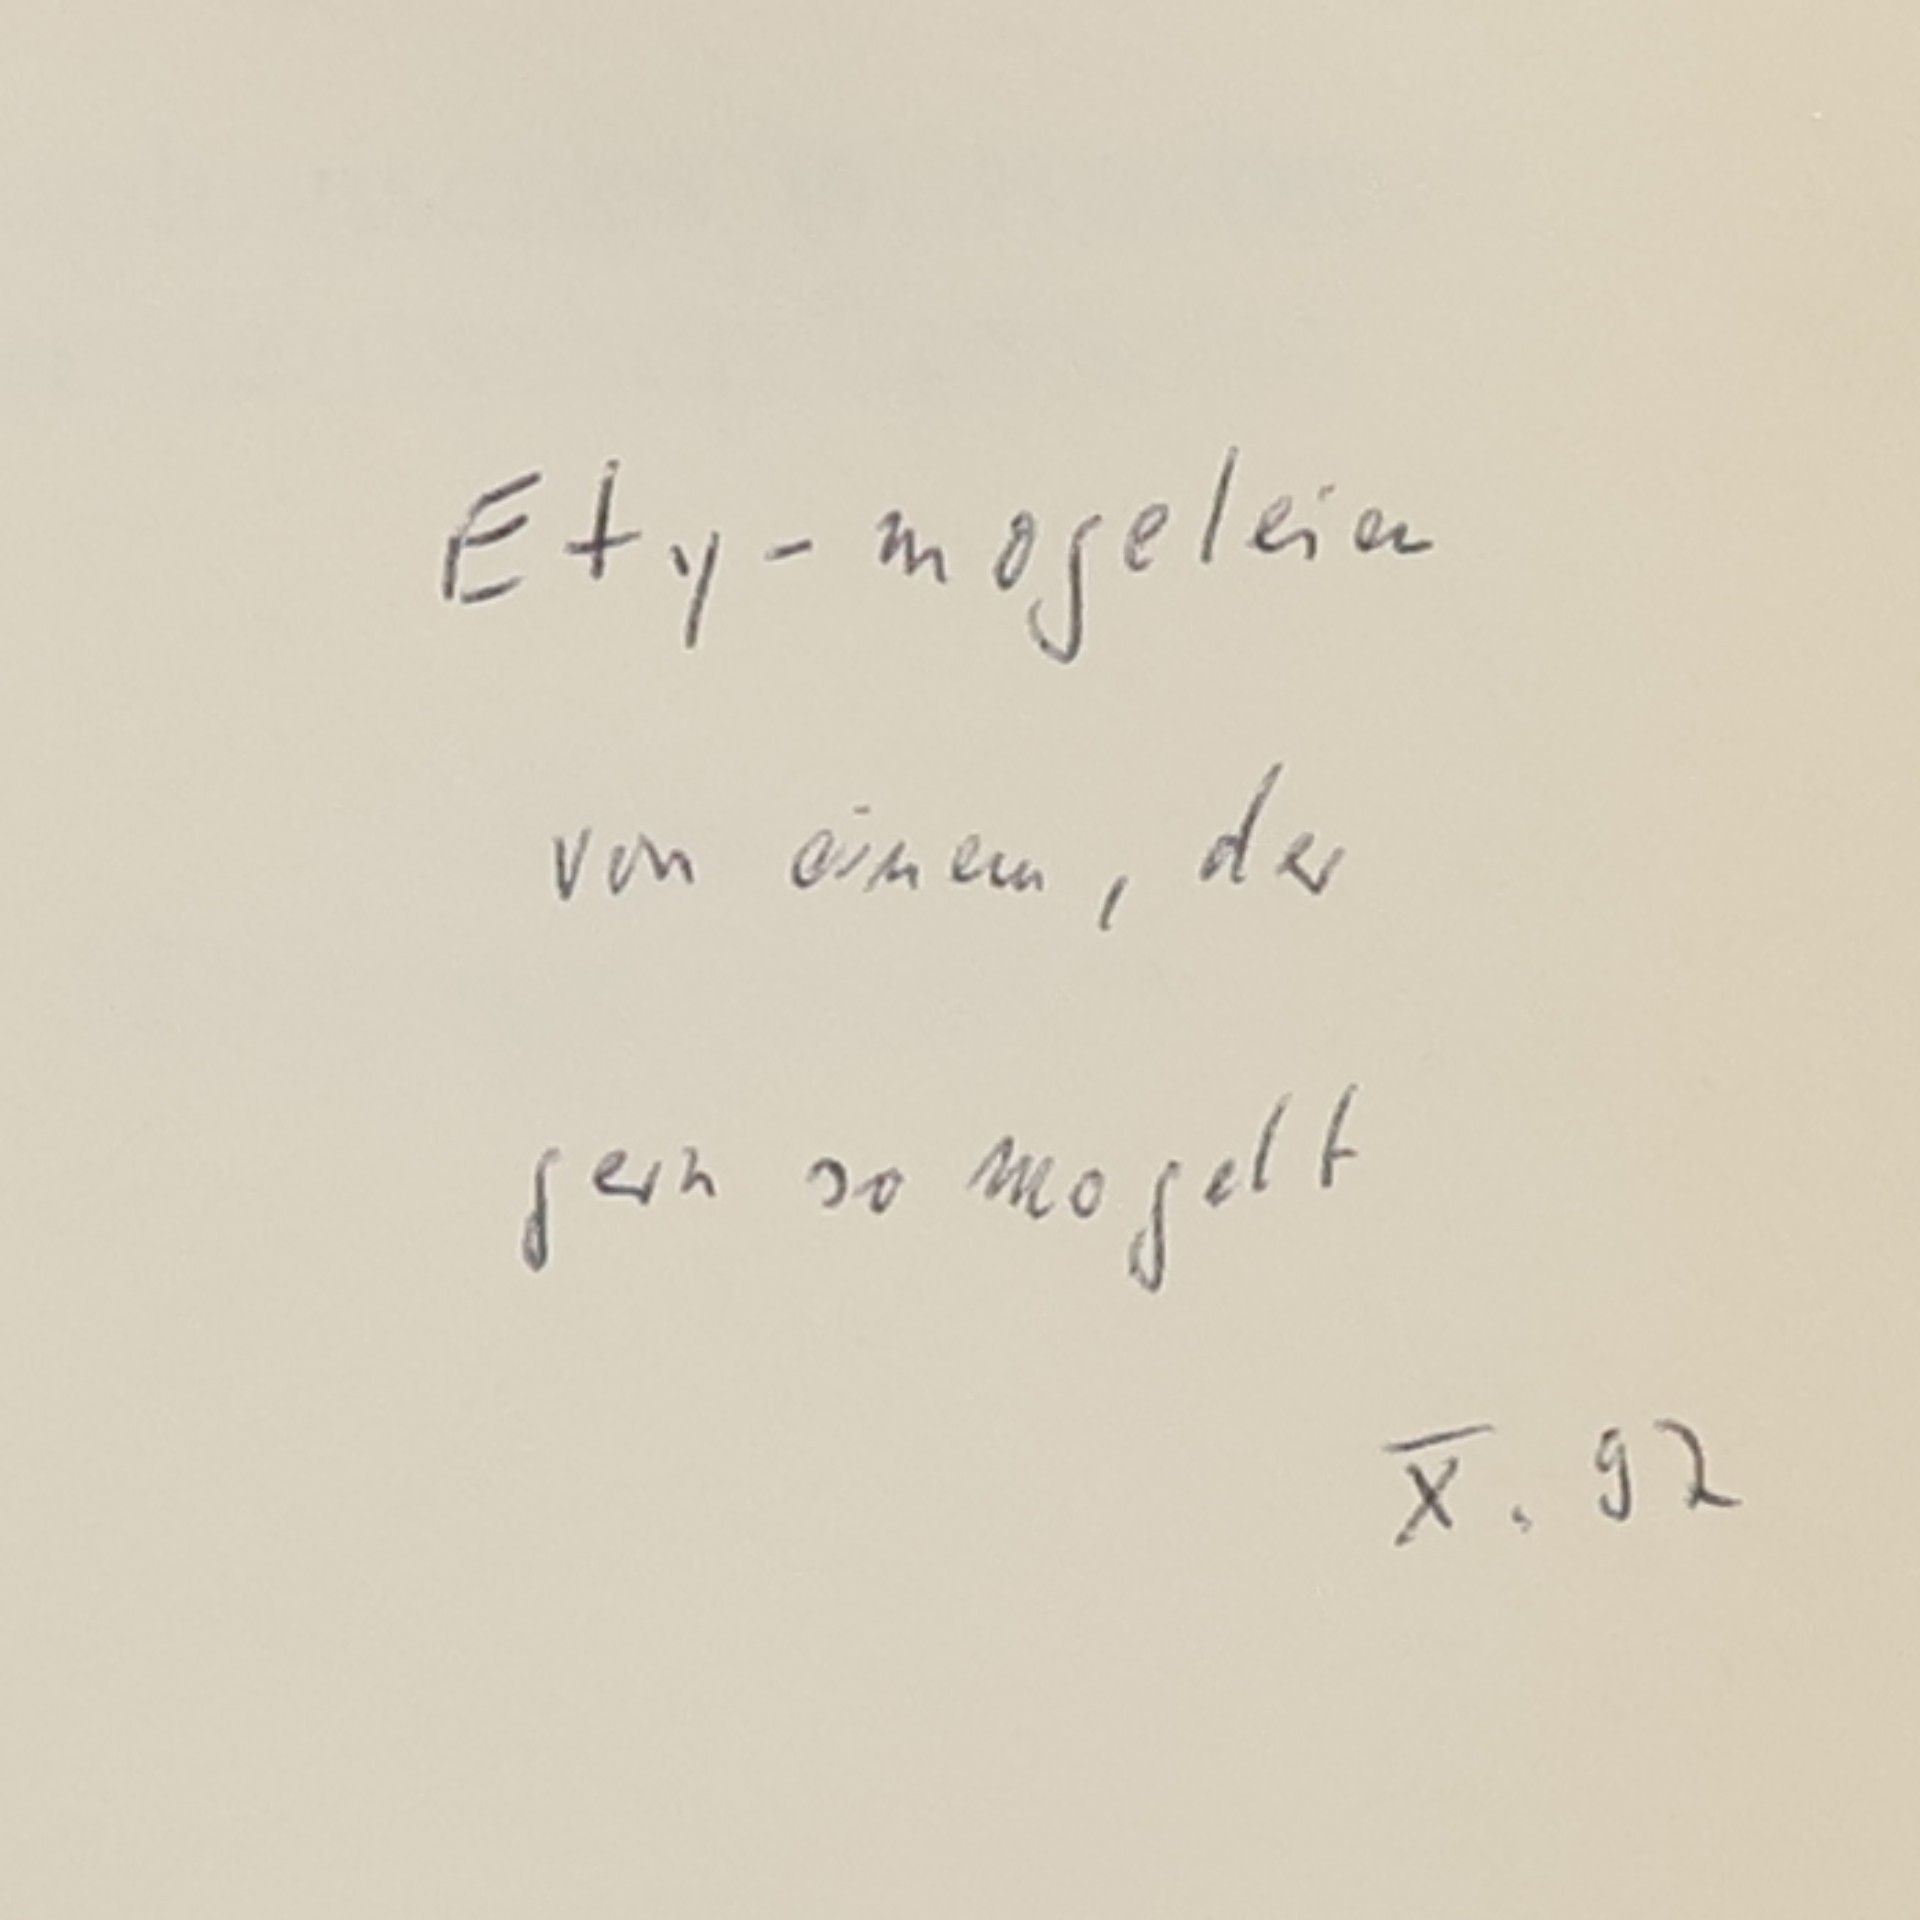 Ety-mogeleien
von einem, der
gern so mogelt
X. 92